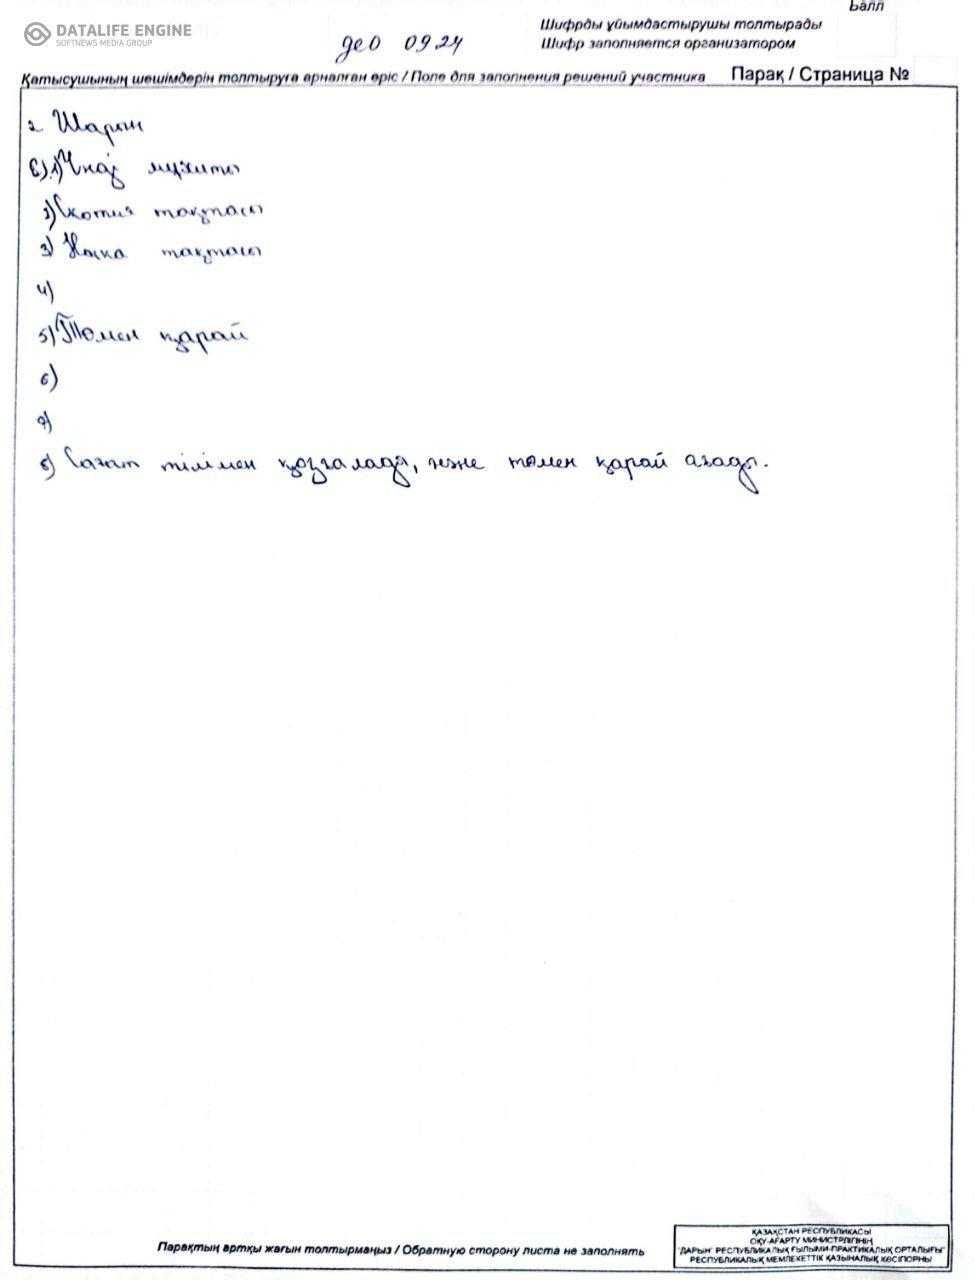 Балл
DATALIFE ENGINE
SOFTNEWS MEDIA GROUP
Шифрды ұйымдастырушы толтырады
гео 0924
Шифр заполняется организатором
Қатысушының шешімдерін толтыруға арналған өріс / Поле для заполнения решений участника Парақ / Страница №
2 Шарын
6) 1) Үнді мұхиты
2) Скотия тақтасы
3) Наска тақтасы
4)
5) Төмен қарай
6)
7)
8) Сағат тілімен қозғалады, және төмен қарай ағады.
Парақтың артқы жағын толтырмаңыз / Обратную сторону листа не заполнять
ҚАЗАҚСТАН РЕСПУБЛИКАСЫ
ОҚУ-АҒАРТУ МИНИСТРЛІГІНІҢ
"ДАРЫН" РЕСПУБЛИКАЛЫҚ ҒЫЛЫМИ-ПРАКТИКАЛЫҚ ОРТАЛЫҒЫ"
РЕСПУБЛИКАЛЫҚ МЕМЛЕКЕТТІК ҚАЗЫНАЛЫҚ КӘСІПОРНЫ